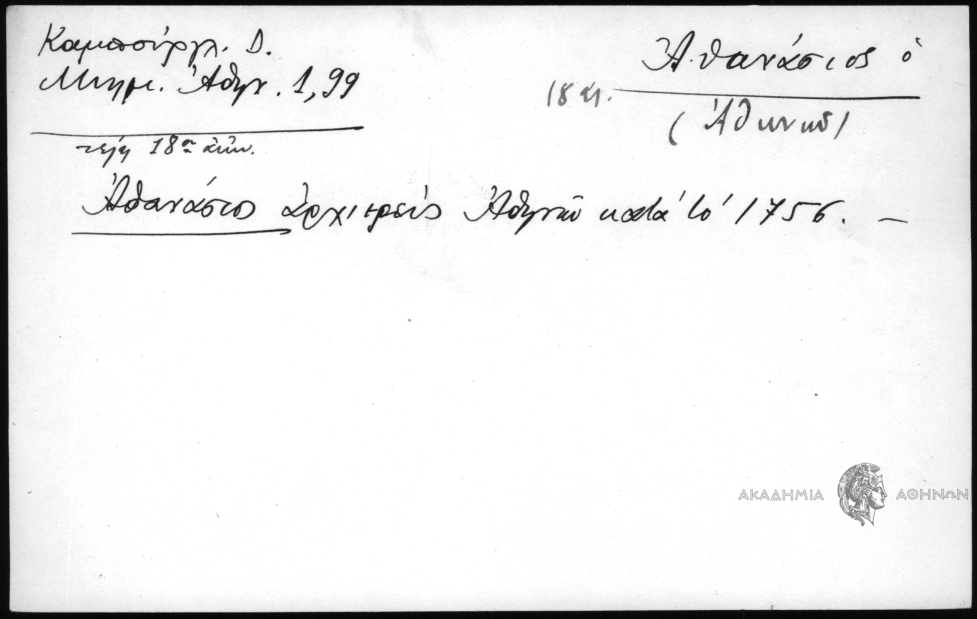 Καμπούργλ. Δ.
Μνημ. Ἀθην. 1,99
τέλη 18ου αἰῶν.
Ἀθανάσιος ὁ
18 αι.
(Ἀθηνῶν)
Ἀθανάσιος ἀρχιερεύς Ἀθηνῶν κατά τό 1756. –
ΑΚΑΔΗΜΙΑ ΑΘΗΝΩΝ